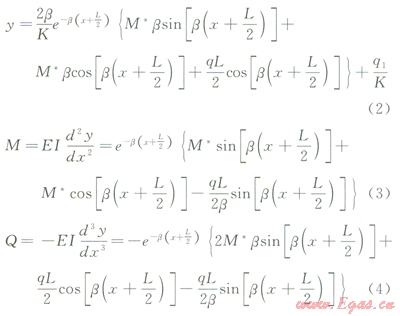 y = \frac{2β}{K} e^{-β(x+\frac{L}{2})} {M*βsin[β(x+\frac{L}{2})]+
M*βcos[β(x+\frac{L}{2})]+\frac{qL}{2}cos[β(x+\frac{L}{2})]}+\frac{q_1}{K}
(2)
M = EI \frac{d^2y}{dx^2} = e^{-β(x+\frac{L}{2})} {M*sin[β(x+\frac{L}{2})]+
M*cos[β(x+\frac{L}{2})]-\frac{qL}{2β}sin[β(x+\frac{L}{2})]} (3)
Q = -EI \frac{d^3y}{dx^3} = -e^{-β(x+\frac{L}{2})} {2M*βsin[β(x+\frac{L}{2})]+
\frac{qL}{2}cos[β(x+\frac{L}{2})]-\frac{qL}{2β}sin[β(x+\frac{L}{2})]} (4)
www.Egas.cn